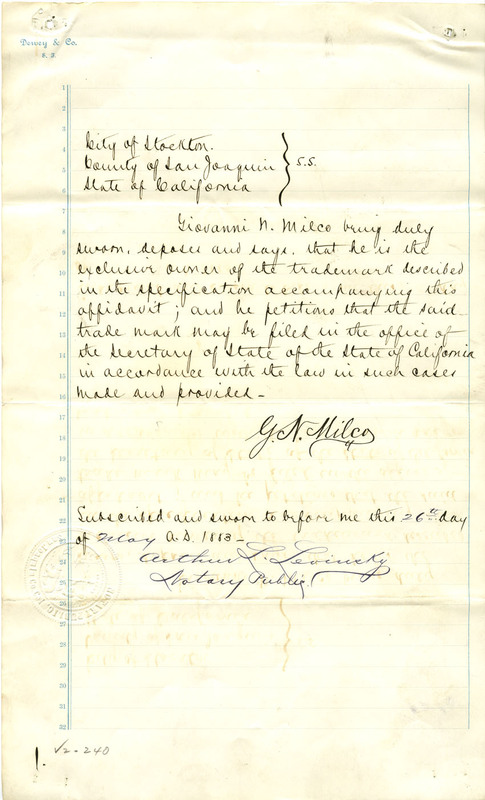 Dewey & Co.
S. F.
City of Stockton.
County of San Joaquin
State of California
S.S.
Giovanni N. Milco being duly
sworn, deposes and says, that he is the
exclusive owner of the trademark described
in the specification accompanying this
affidavit; and he petitions that the said
trade mark may be filed in the office of
the Secretary of State of the State of California
in accordance with the law in such cases
made and provided –
G. N. Milco
Subscribed and sworn to before me this 26th day
of May A.D. 1883 –
Arthur L. Levinsky
Notary Public
1
2
3
4
5
6
7
8
9
10
11
12
13
14
15
16
17
18
19
20
21
22
23
24
25
26
27
28
29
30
31
32
√2-240